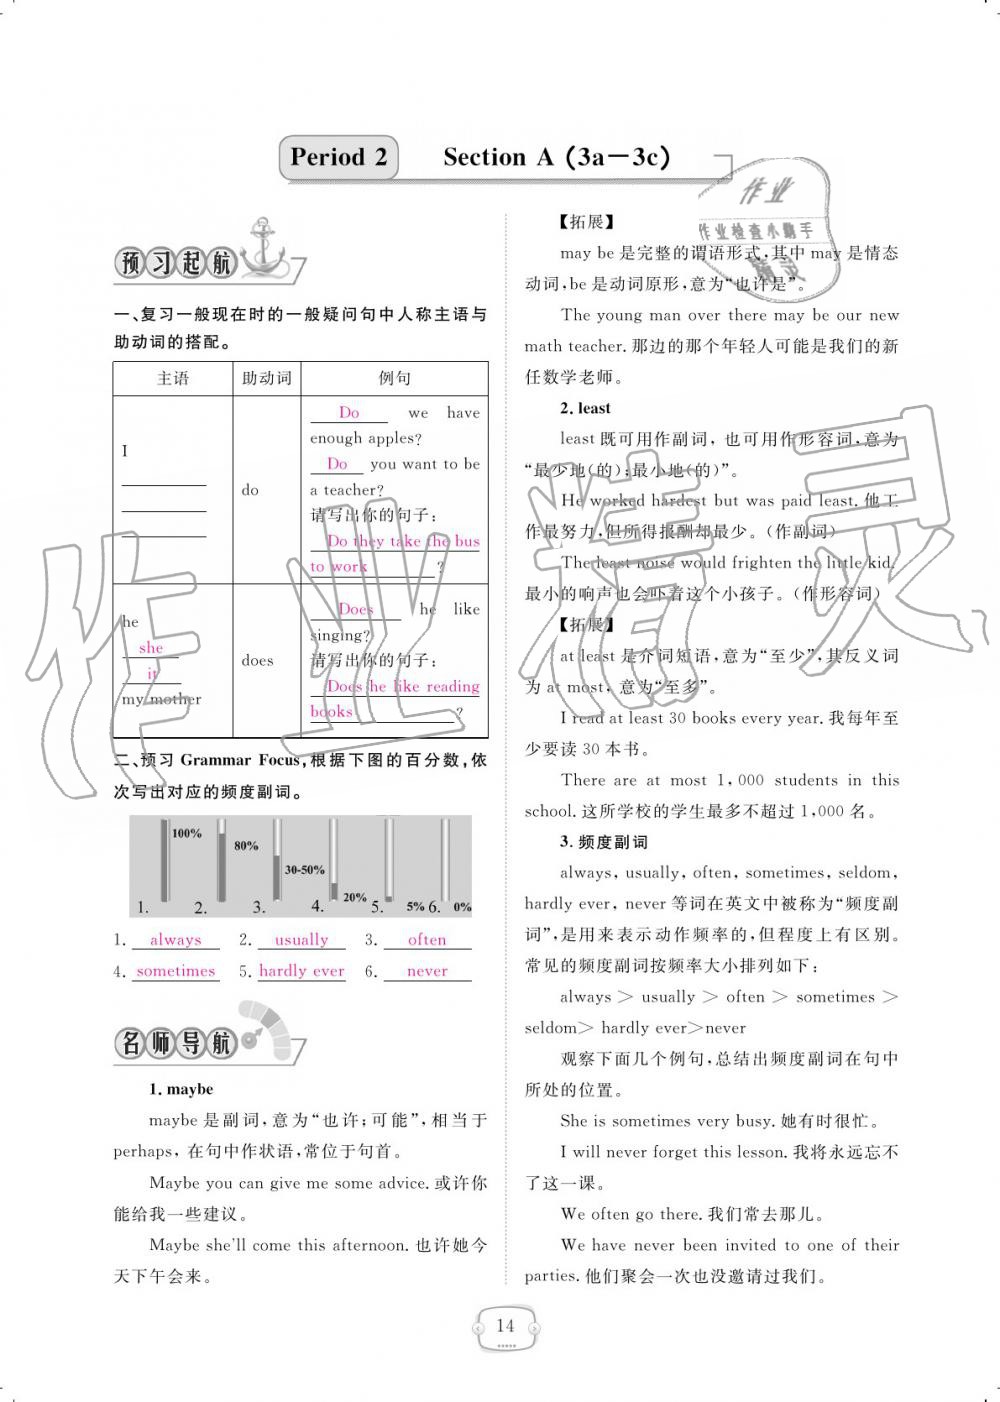 Period 2 Section A (3a—3c)
预习起航
一、复习一般现在时的一般疑问句中人称主语与
助动词的搭配。
主语 助动词 例句
I
do
Do we have
enough apples?
Do you want to be
a teacher?
请写出你的句子:
Do they take the bus
to work ?
he
she
it
my mother
does
Does he like
singing?
请写出你的句子:
Does he like reading
books ?
二、预习 Grammar Focus,根据下图的百分数,依
次写出对应的频度副词。
100% 80% 30-50% 20% 5% 0%
1. 2. 3. 4. 5. 6.
1. always 2. usually 3. often
4. sometimes 5. hardly ever 6. never
名师导航
1. maybe
maybe 是副词,意为“也许;可能”,相当于
perhaps, 在句中作状语,常位于句首。
Maybe you can give me some advice. 或许你
能给我一些建议。
Maybe she'll come this afternoon. 也许她今
天下午会来。
【拓展】
may be 是完整的谓语形式,其中 may 是情态
动词,be 是动词原形,意为“也许是”。
The young man over there may be our new
math teacher. 那边的那个年轻人可能是我们的新
任数学老师。
2. least
least 既可用作副词, 也可用作形容词,意为
“最少地(的);最小地(的)”。
He worked hardest but was paid least. 他工
作最努力,但所得报酬却最少。(作副词)
The least noise would frighten the little kid.
最小的响声也会吓着这个小孩子。(作形容词)
【拓展】
at least 是介词短语,意为“至少”,其反义词
为 at most, 意为“至多”。
I read at least 30 books every year. 我每年至
少要读 30 本书。
There are at most 1,000 students in this
school. 这所学校的学生最多不超过 1,000 名。
3. 频度副词
always, usually, often, sometimes, seldom,
hardly ever, never 等词在英文中被称为“频度副
词”,是用来表示动作频率的,但程度上有区别。
常见的频度副词按频率大小排列如下:
always > usually > often > sometimes >
seldom> hardly ever>never
观察下面几个例句,总结出频度副词在句中
所处的位置。
She is sometimes very busy. 她有时很忙。
I will never forget this lesson. 我将永远忘不
了这一课。
We often go there. 我们常去那儿。
We have never been invited to one of their
parties. 他们聚会一次也没邀请过我们。
14
作业
作业检查小助手
精灵
作业精灵